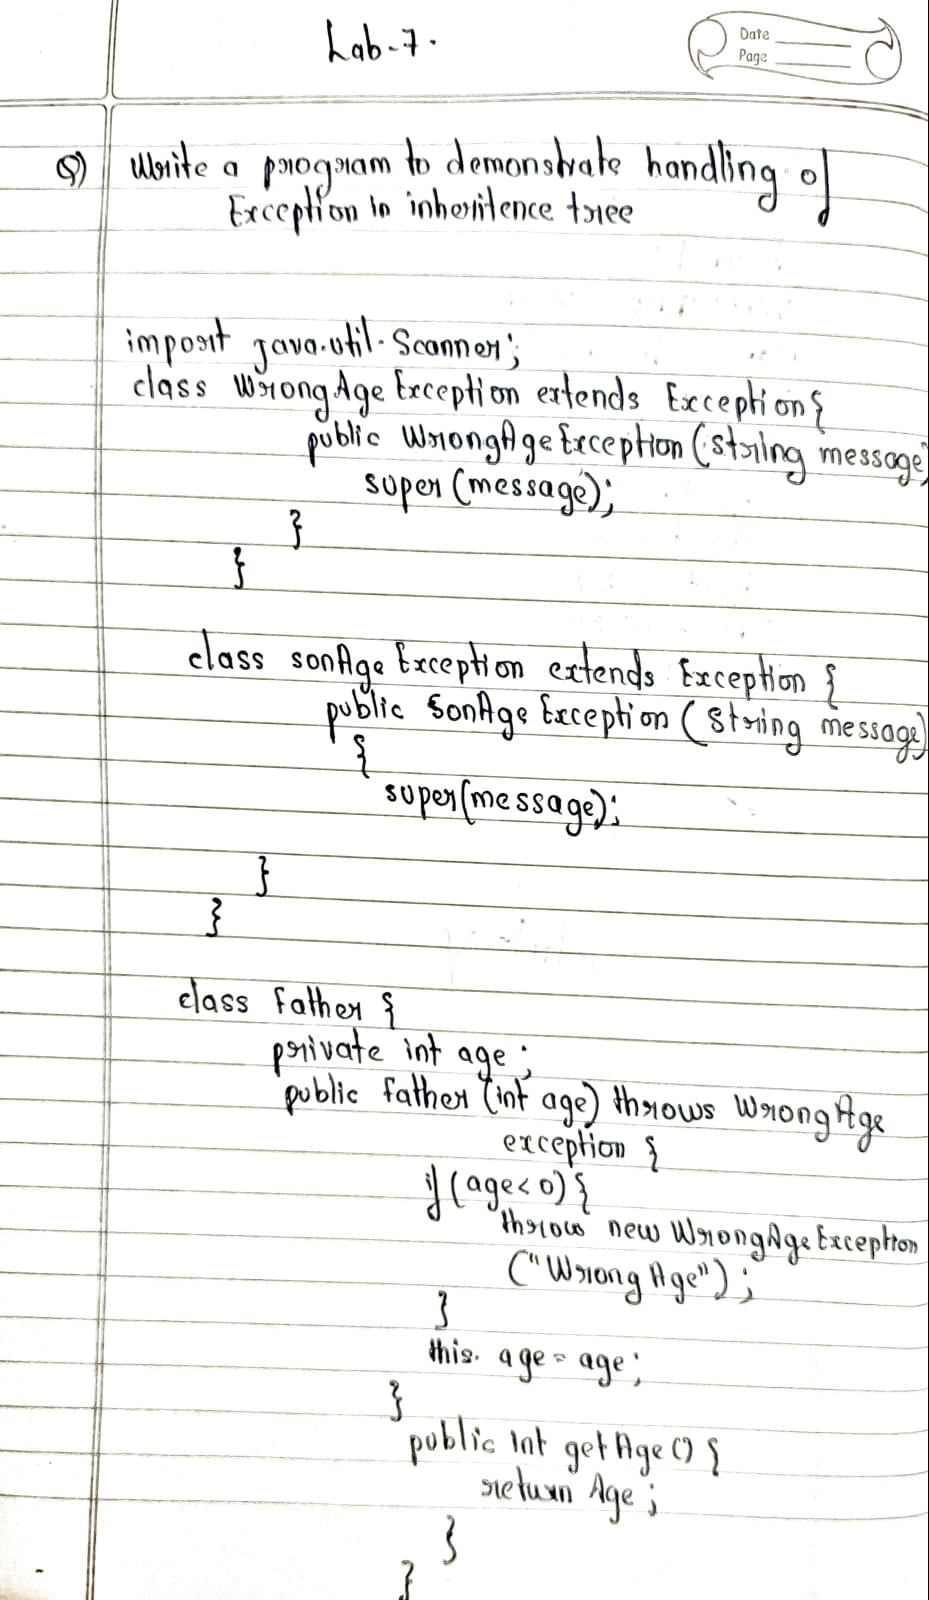 Lab-7.
Date
Page
Q) Write a program to demonstrate handling of
Exception in inheritence tree
import java.util.Scanner;
class WrongAgeException extends Exception{
public WrongAgeException (String message)
super (message);
}
}
class sonAge Exception extends Exception {
public SonAge Exception (String message)
{
super(message);
}
}
class Father {
private int age;
public father (int age) throws WrongAge
exception {
if (age<0) {
throw new WrongAgeException
("Wrong Age");
}
this. age = age;
}
public int getAge() {
return Age;
}
}